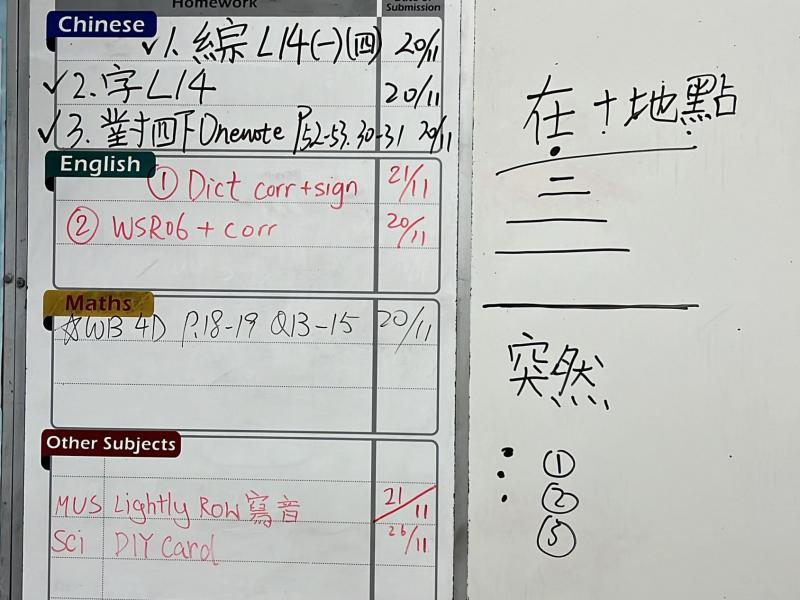 Homework
Submission
Chinese
✓1. 綜 L14(一)(四) 20/11
✓2. 字L14 20/11
✓3. 四下Onenote P.52-53. 30-31 20/11
English
① Dict corr+sign 21/11
② WSR06 + corr 20/11
Maths
☆WB 4D P.18-19 Q13-15 20/11
Other Subjects
MUS Lightly Row 寫音 21/11
Sci DIY Card 26/11
在 + 地點
突然
①
②
③